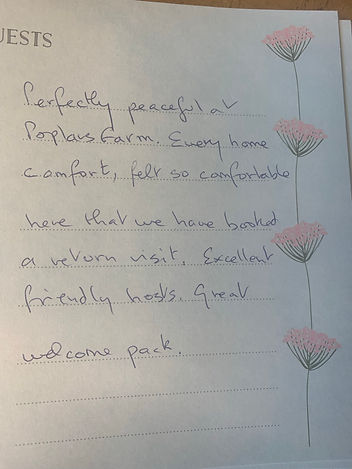 UESTS
Perfectly peaceful at
Poplars Farm. Every home
comfort, felt so comfortable
here that we have booked
a return visit. Excellent
friendly hosts. Great
welcome pack.